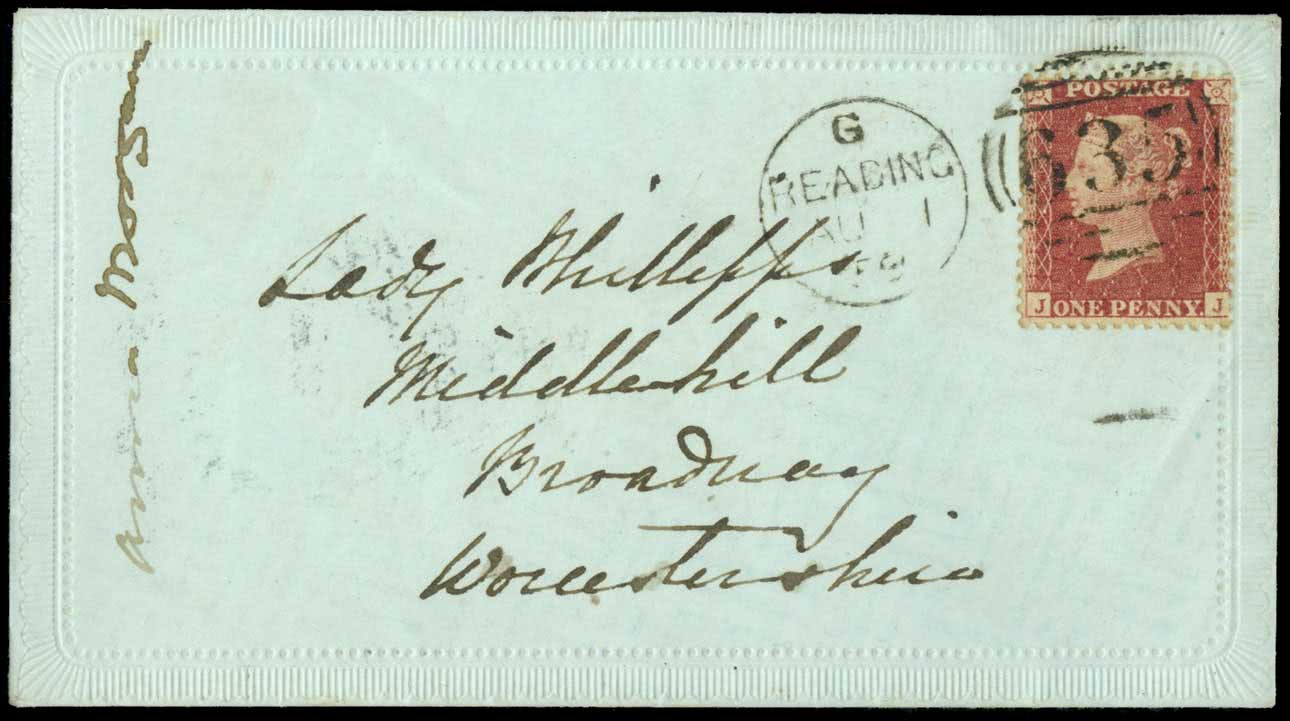 G
READING
AU 1
59
POSTAGE
635
J ONE PENNY J
Lady Phillipps
Middlehill
Broadway
Worcestershire